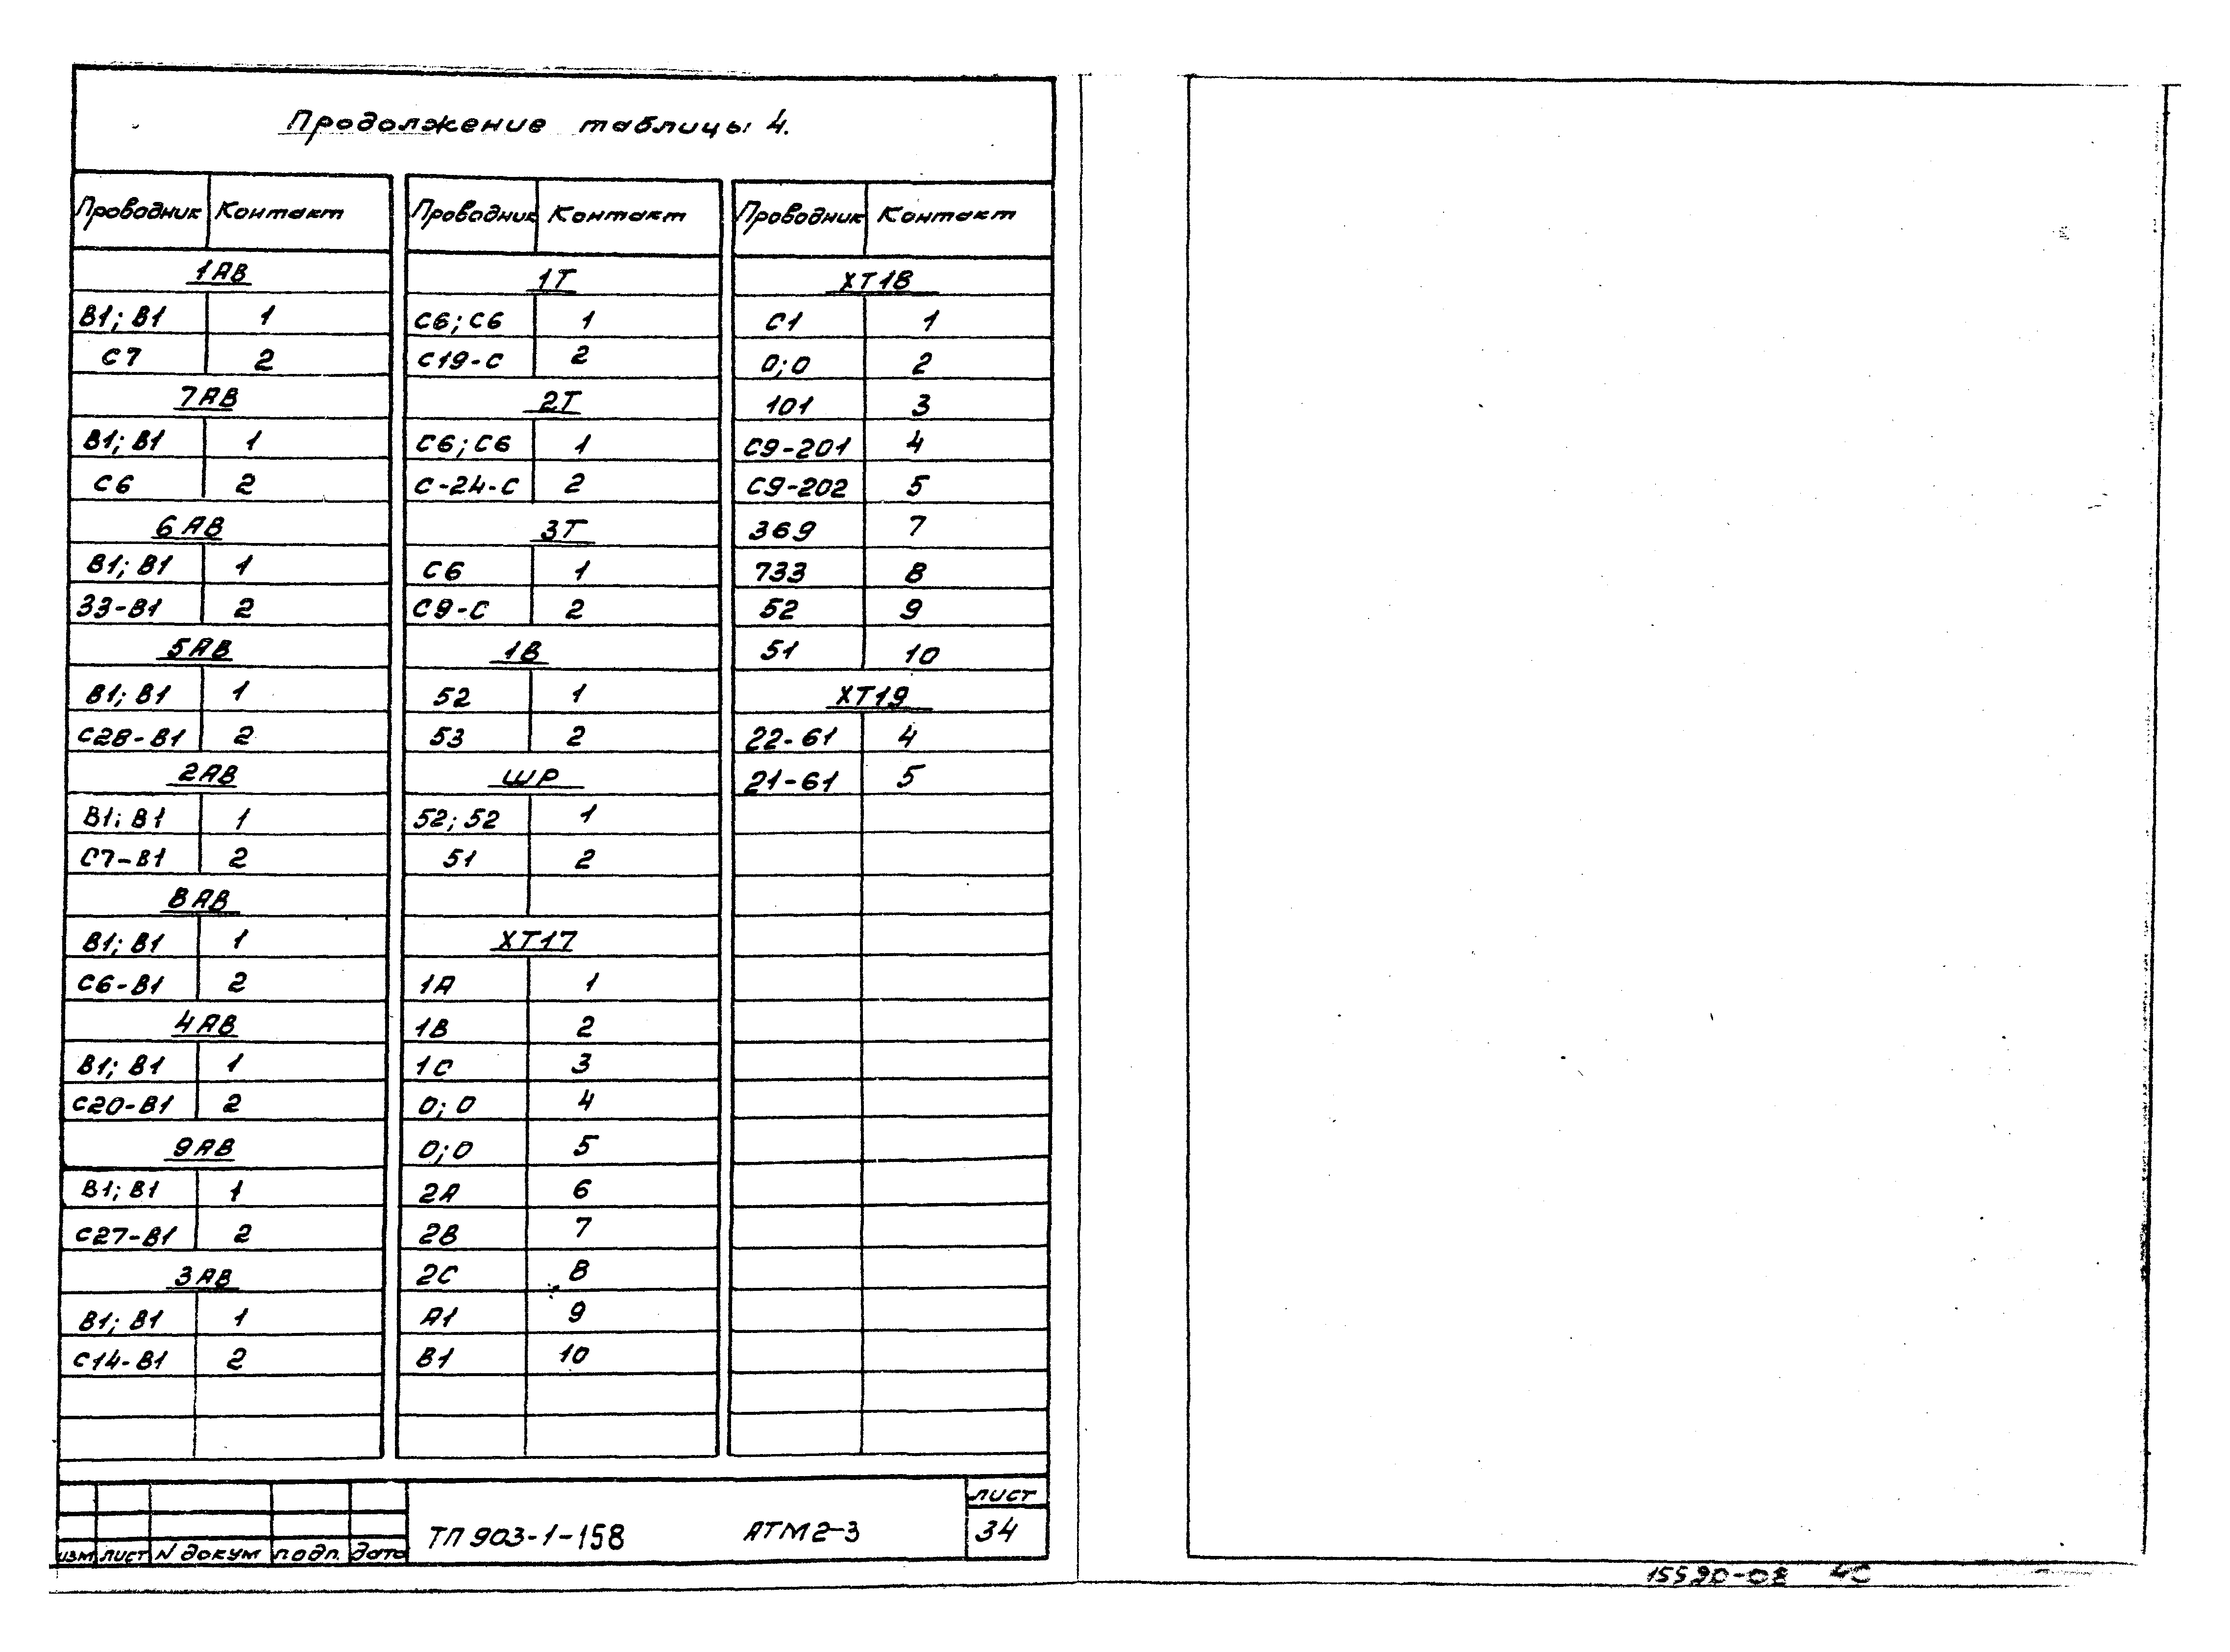 Продолжение таблицы 4.
Проводник Контакт
1АВ
В1; В1 1
С7 2
7АВ
В1; В1 1
С6 2
6АВ
В1; В1 1
33-В1 2
5АВ
В1; В1 1
С28-В1 2
2АВ
В1; В1 1
С7-В1 2
8АВ
В1; В1 1
С6-В1 2
4АВ
В1; В1 1
С20-В1 2
9АВ
В1; В1 1
С27-В1 2
3АВ
В1; В1 1
С14-В1 2
Проводник Контакт
1Т
С6; С6 1
С19-С 2
2Т
С6; С6 1
С-24-С 2
3Т
С6 1
С9-С 2
1В
52 1
53 2
ШР
52; 52 1
51 2
ХТ17
1А 1
1В 2
1С 3
0; 0 4
0; 0 5
2А 6
2В 7
2С 8
А1 9
В1 10
Проводник Контакт
ХТ18
С1 1
0; 0 2
101 3
С9-201 4
С9-202 5
369 7
733 8
52 9
51 10
ХТ19
22-61 4
21-61 5
изм лист N докум подп. дата
ТП 903-1-158 АТМ2-3
лист
34
15590-08